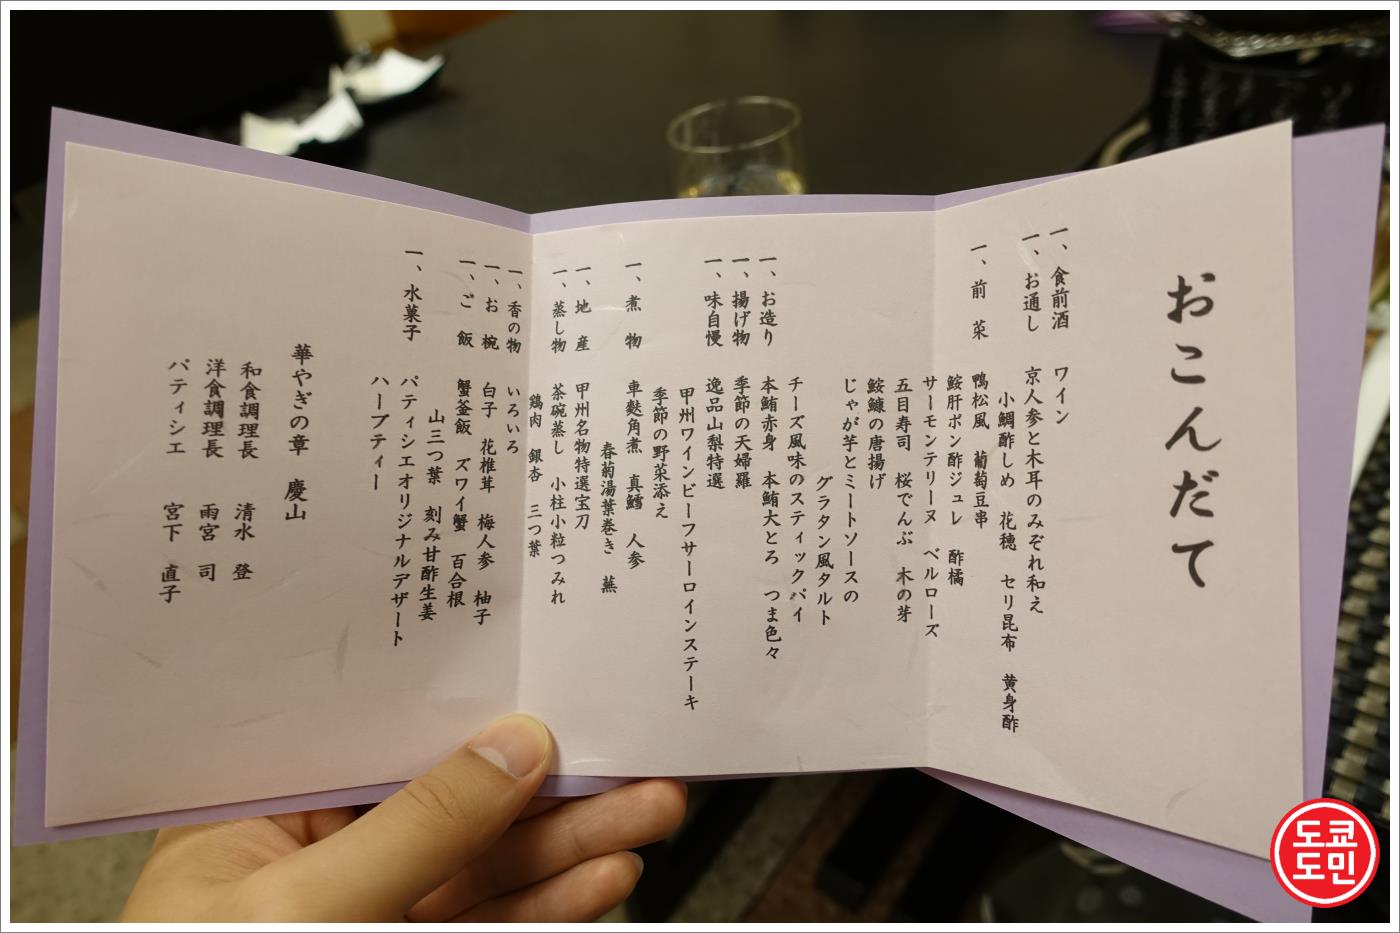 おこんだて
一、食前酒 ワイン
一、お通し 京人参と木耳のみぞれ和え
小鯛酢しめ 花穂 セリ昆布 黄身酢
一、前 菜 鴨松風 葡萄豆串
鮟肝ポン酢ジュレ 酢橘
サーモンテリーヌ ベルローズ
五目寿司 桜でんぶ 木の芽
鮟鱇の唐揚げ
じゃが芋とミートソースの
グラタン風タルト
チーズ風味のスティックパイ
一、お造り 本鮪赤身 本鮪大とろ つま色々
一、揚げ物 季節の天婦羅
一、味自慢 逸品山梨特選
甲州ワインビーフサーロインステーキ
季節の野菜添え
一、煮 物 車麩角煮 真鱈 人参
春菊湯葉巻き 蕪
一、地 産 甲州名物特選宝刀
一、蒸し物 茶碗蒸し 小柱小粒つみれ
鶏肉 銀杏 三つ葉
一、香の物 いろいろ
一、お 椀 白子 花椎茸 梅人参 柚子
一、ご 飯 蟹釜飯 ズワイ蟹 百合根
山三つ葉 刻み甘酢生姜
一、水菓子 パティシエオリジナルデザート
ハーブティー
華やぎの章 慶山
和食調理長 清水 登
洋食調理長 雨宮 司
パティシエ 宮下 直子
도쿄
도민